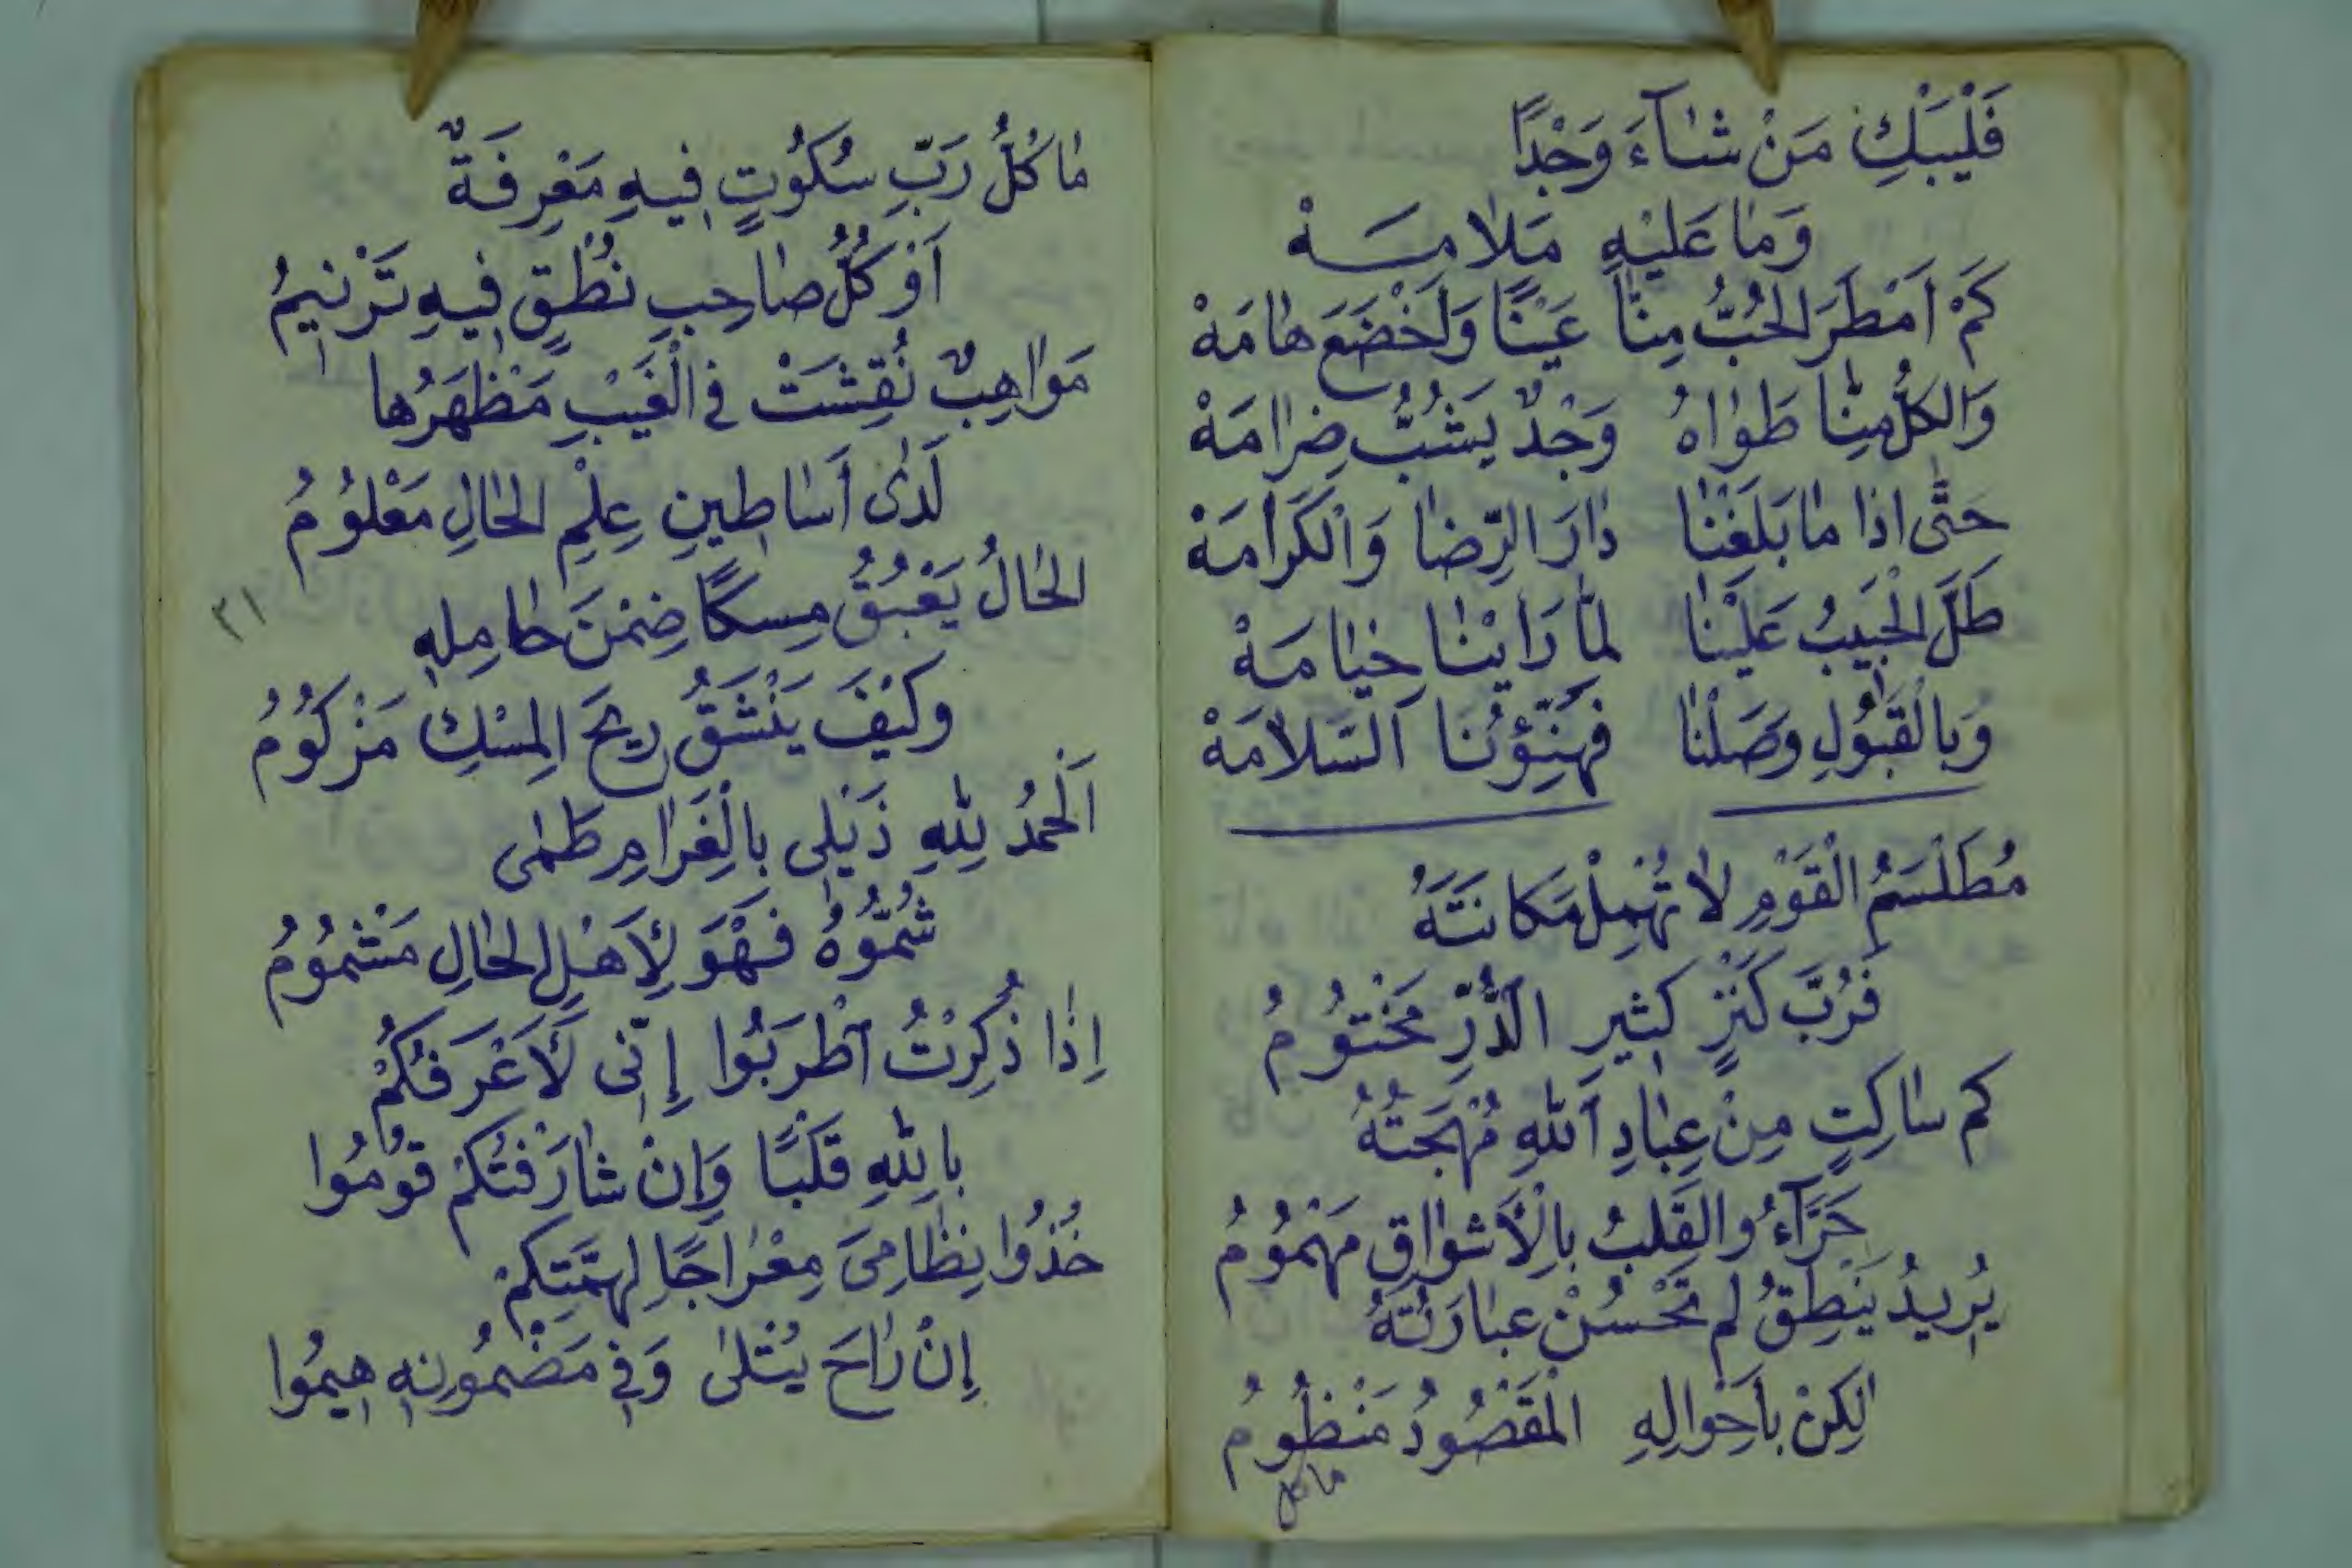 فَلْيَبْكِ مَنْ شَآءَ وَجْدًا
وَمَا عَلَيْهِ مَلَامَهْ
كَمْ اَمْطَرَ الْحُبُّ مِنَّا عَيْنًا وَاَخْضَعَ هَامَهْ
وَالكُلُّ مِنَّا طَوَاهُ وَجْدٌ يَشُبُّ ضِرَامَهْ
حَتَّى اِذَا مَا بَلَغْنَا دَارَ الرِّضَا وَالْكَرَامَهْ
طَلَّ الْحَبِيبُ عَلَيْنَا لمَّا رَاَيْنَا خِيَامَهْ
وَبِالْقَبُولِ وَصَلْنَا فَهَنِّؤُنَا اَلسَّلَامَهْ
مُطَلْسَمُ الْقَوْمِ لَا تُهْمِلْ مَكَانَتَهُ
فَرُبَّ كَنْزٍ كَثِيرِ الدُّرِّ مَخْتُومُ
كم سَاكِتٍ مِنْ عِبَادِ اَللّٰهِ مُهْجَتُهُ
حَرَّآءُ والقَلبُ بِالْأَشْوَاقِ مَهْمُومُ
يُرِيدُ يَنْطِقُ لم تَحْسُنْ عبَارَتُهُ
لٰكِنْ بِأَحْوَالِهِ الْمَقْصُودُ مَنْظُومُ
ما كل
مَا كُلُّ رَبِّ سُكُوتٍ فِيهِ مَعْرِفَةٌ
اَوْ كُلُّ صَاحِبِ نُطْقٍ فِيهِ تَرْنِيمُ
مَوَاهِبٌ نُقِشَتْ في الْغَيْبِ مَظْهَرُها
لَدَى أَسَاطِينِ عِلْمِ الْحَالِ مَعْلُومُ
الْحَالُ يَعْبُقُ مِسكًا ضِمْنَ حَامِلِهِ
٣١
وكَيْفَ يَنْشَقُ رِيحَ الِمسْكِ مَزْكُومُ
اَلْحَمْدُ لِلّٰهِ ذَيْلِى بِالْغَرَامِ طَمٰى
شُمُّوهُ فَهْوَ لِأَهْلِ الْحَالِ مَشْمُومُ
إِذَا ذُكِرْتُ اطْرَبُوا إِنِّى لَأَعْرَفُكُمْ
بِاللّٰهِ قَلْبًا وَإِنْ شَارَفْتُكُمْ قُومُوا
خُذُوا نِظَامِىَ مِعْرَاجًا لِهِمَّتِكُمْ
إِنْ رَاحَ يُتْلىٰ وَفِي مَضْمُونِهِ هِيمُوا